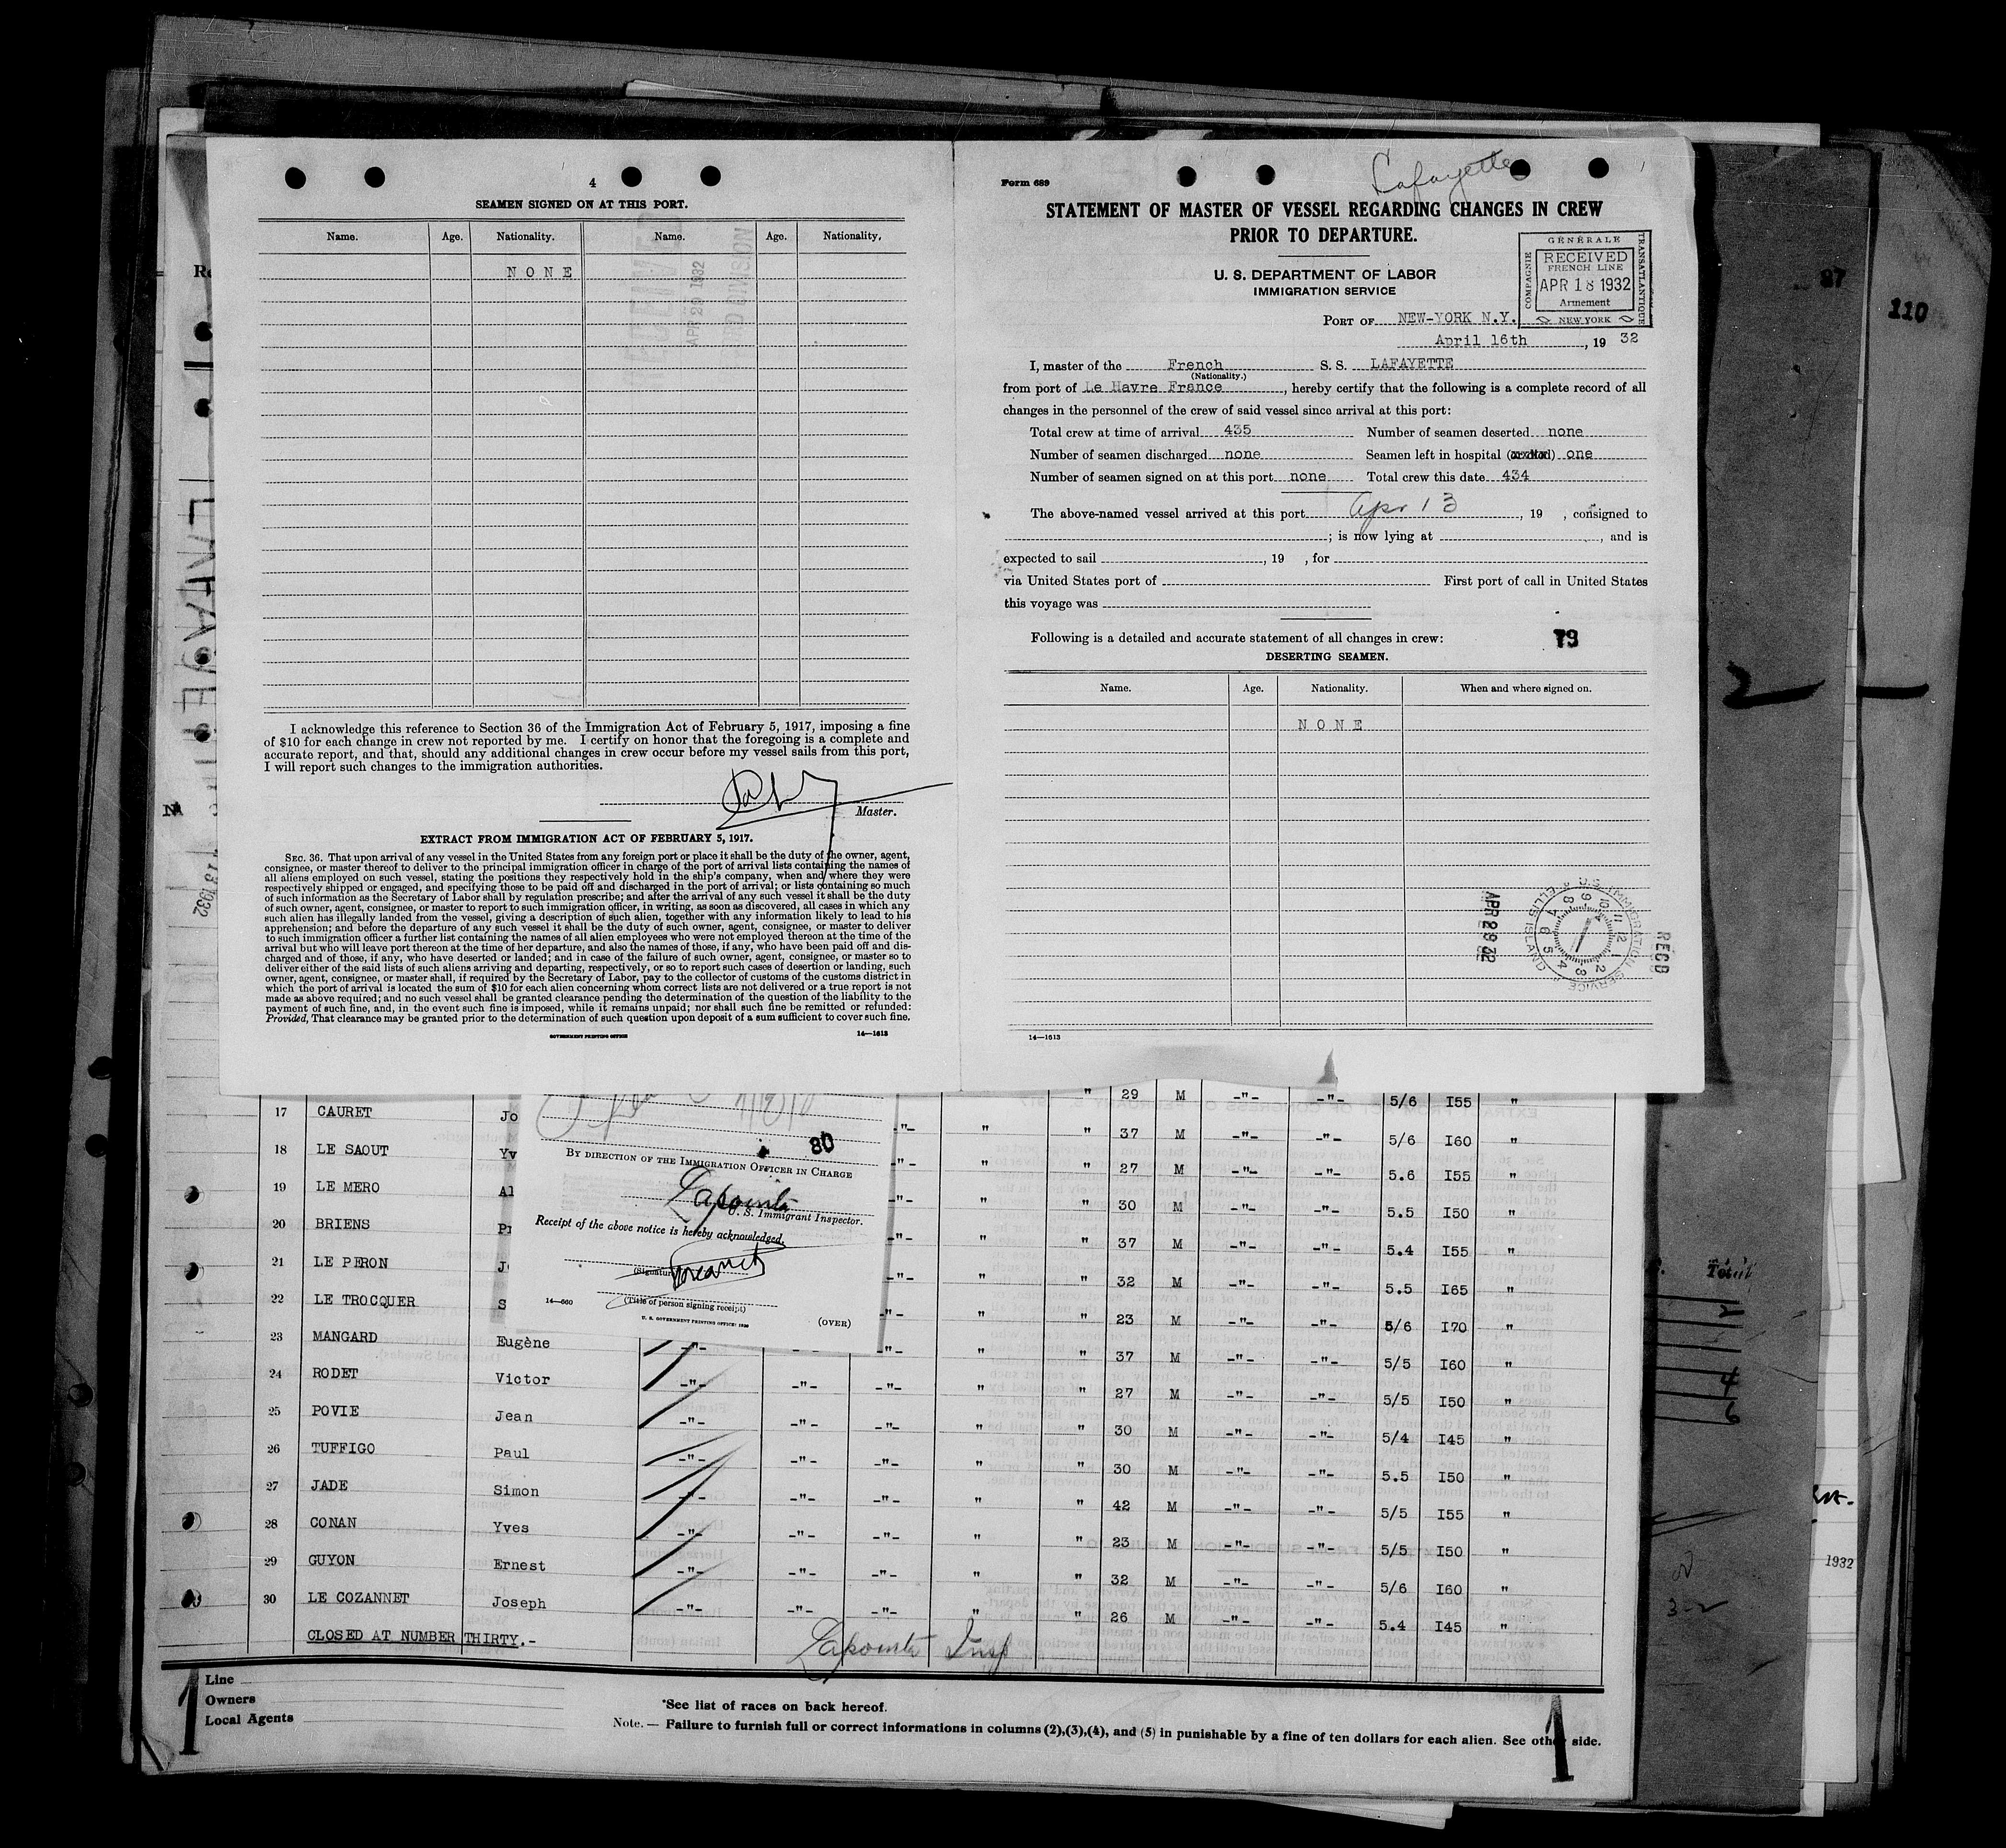 4
SEAMEN SIGNED ON AT THIS PORT.
Name. Age. Nationality. Name. Age. Nationality.
NONE
APR 29 1932
I acknowledge this reference to Section 36 of the Immigration Act of February 5, 1917, imposing a fine
of $10 for each change in crew not reported by me. I certify on honor that the foregoing is a complete and
accurate report, and that, should any additional changes in crew occur before my vessel sails from this port,
I will report such changes to the immigration authorities.
Master.
EXTRACT FROM IMMIGRATION ACT OF FEBRUARY 5, 1917.
SEC. 36. That upon arrival of any vessel in the United States from any foreign port or place it shall be the duty of the owner, agent,
consignee, or master thereof to deliver to the principal immigration officer in charge of the port of arrival lists containing the names of
all aliens employed on such vessel, stating the positions they respectively hold in the ship's company, when and where they were
respectively shipped or engaged, and specifying those to be paid off and discharged in the port of arrival; or lists containing so much
of such information as the Secretary of Labor shall by regulation prescribe; and after the arrival of any such vessel it shall be the duty
of such owner, agent, consignee, or master to report to such immigration officer, in writing, as soon as discovered, all cases in which any
such alien has illegally landed from the vessel, giving a description of such alien, together with any information likely to lead to his
apprehension; and before the departure of any such vessel it shall be the duty of such owner, agent, consignee, or master to deliver
to such immigration officer a further list containing the names of all alien employees who were not employed thereon at the time of the
arrival but who will leave port thereon at the time of her departure, and also the names of those, if any, who have been paid off and dis-
charged and of those, if any, who have deserted or landed; and in case of the failure of such owner, agent, consignee, or master so to
deliver either of the said lists of such aliens arriving and departing, respectively, or so to report such cases of desertion or landing, such
owner, agent, consignee, or master shall, if required by the Secretary of Labor, pay to the collector of customs of the customs district in
which the port of arrival is located the sum of $10 for each alien concerning whom correct lists are not delivered or a true report is not
made as above required; and no such vessel shall be granted clearance pending the determination of the question of the liability to the
payment of such fine, and, in the event such fine is imposed, while it remains unpaid; nor shall such fine be remitted or refunded:
Provided, That clearance may be granted prior to the determination of such question upon deposit of a sum sufficient to cover such fine.
GOVERNMENT PRINTING OFFICE 14—1613
Form 689
Lafayette
STATEMENT OF MASTER OF VESSEL REGARDING CHANGES IN CREW
PRIOR TO DEPARTURE.
U. S. DEPARTMENT OF LABOR
IMMIGRATION SERVICE
COMPAGNIE GÉNÉRALE TRANSATLANTIQUE
RECEIVED
FRENCH LINE
APR 18 1932
Armement
NEW YORK
PORT OF NEW-YORK N.Y.
April 16th, 19 32
I, master of the French S. S. LAFAYETTE
(Nationality.)
from port of Le Havre France, hereby certify that the following is a complete record of all
changes in the personnel of the crew of said vessel since arrival at this port:
Total crew at time of arrival 435 Number of seamen deserted none
Number of seamen discharged none Seamen left in hospital one
Number of seamen signed on at this port none Total crew this date 434
The above-named vessel arrived at this port Apr 13, 19 , consigned to
; is now lying at , and is
expected to sail , 19 , for
via United States port of First port of call in United States
this voyage was
Following is a detailed and accurate statement of all changes in crew: 79
DESERTING SEAMEN.
Name. Age. Nationality. When and where signed on.
NONE
APR 29 32
U.S. IMMIGRATION SERVICE ELLIS ISLAND
RECD
14—1613
87
110
2
29 M -"- -"- 5/6 I55 "
17 CAURET Jo -"- " " 37 M -"- -"- 5/6 I60 "
18 LE SAOUT Yv -"- " " 27 M -"- -"- 5.6 I55 "
19 LE MERO Al -"- " " 30 M -"- -"- 5.5 I50 "
20 BRIENS -"- " " 37 M -"- -"- 5.4 I55 "
21 LE PERON J -"- " " 32 M -"- -"- 5.5 I65 "
22 LE TROCQUER S -"- " " 23 M -"- -"- 5/6 I70 "
23 MANGARD Eugène -"- -"- " " 37 M -"- -"- 5/5 I60 "
24 RODET Victor -"- -"- -"- " " 27 M -"- -"- 5/5 I50 "
25 POVIE Jean -"- -"- -"- " " 30 M -"- -"- 5/4 I45 "
26 TUFFIGO Paul -"- -"- -"- " " 30 M -"- -"- 5.5 I50 "
27 JADE Simon -"- -"- -"- " " 42 M -"- -"- 5/5 I55 "
28 CONAN Yves -"- -"- -"- " " 23 M -"- -"- 5/5 I50 "
29 GUYON Ernest -"- -"- -"- " " 32 M -"- -"- 5/6 I60 "
30 LE COZANNET Joseph -"- -"- -"- " " 26 M -"- -"- 5.4 I45 "
CLOSED AT NUMBER THIRTY.-
Lapointe Insp
80
BY DIRECTION OF THE IMMIGRATION OFFICER IN CHARGE
Lapointe
U. S. Immigrant Inspector.
Receipt of the above notice is hereby acknowledged.
(Signature
(Title of person signing receipt)
14—660
U. S. GOVERNMENT PRINTING OFFICE: 1930
(OVER)
Total
1932
3-2
1
Line
Owners
Local Agents
*See list of races on back hereof.
Note. — Failure to furnish full or correct informations in columns (2),(3),(4), and (5) in punishable by a fine of ten dollars for each alien. See other side.
1